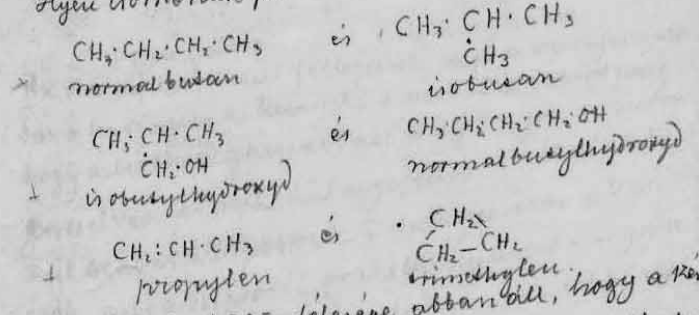 CH₃·CH₂·CH₂·CH₃ és CH₃·CH·CH₃
CH₃
normalbutan isobutan
CH₃·CH·CH₃ és CH₃·CH₂·CH₂·CH₂·OH
CH₂·OH
isobutylhydroxyd normalbutylhydroxyd
CH₂:CH·CH₃ és CH₂
CH₂–CH₂
propylen trimethylen.
abban áll, hogy a